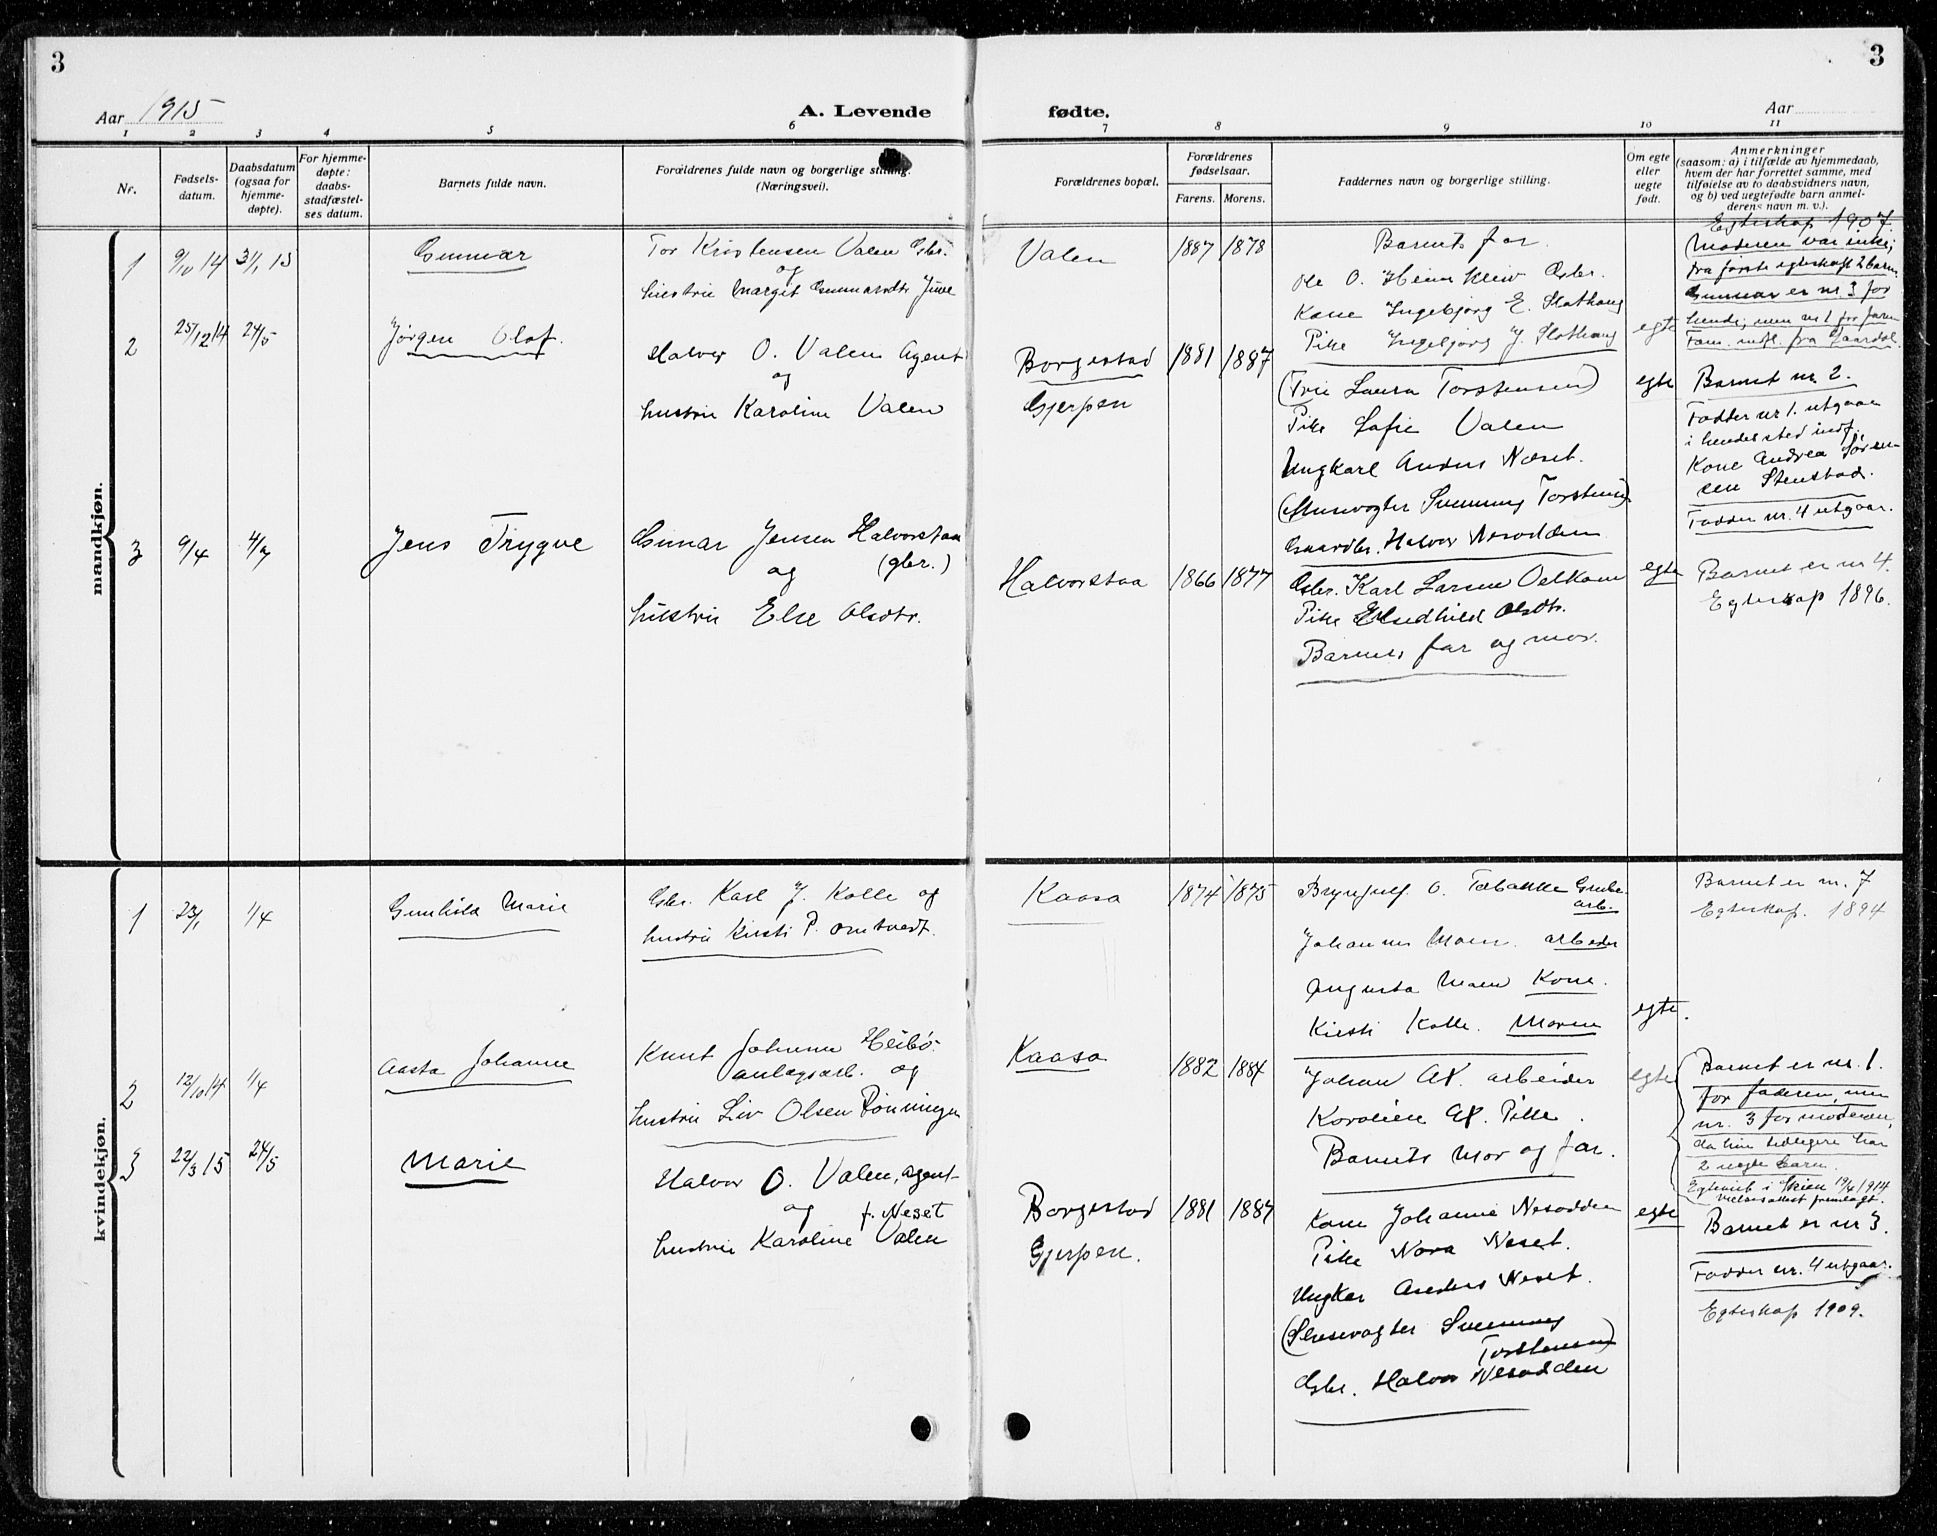 3
3
Aar 1915
A. Levende
fødte.
Aar
1
2
3
4
5
6
7
8
9
10
11
Nr.
Fødsels-
datum.
Daabsdatum
(ogsaa for
hjemme-
døpte).
For hjemme-
døpte:
daabs-
stadfæstel-
ses datum.
Barnets fulde navn.
Forældrenes fulde navn og borgerlige stilling.
(Næringsvei).
Forældrenes bopæl.
Forældrenes
fødselsaar.
Farens.
Morens.
Faddernes navn og borgerlige stilling.
Om egte
eller
uegte
født.
Anmerkninger
(saasom: a) i tilfælde av hjemmedaab,
hvem der har forrettet samme, med
tilføielse av to daabsvidners navn,
og b) ved uegtefødte barn anmel-
derens navn m. v.).
mandkjøn.
1
9/10 14
3/1 15
Gunnar
Tor Kristensen Valen Gbr.
og
hustru Margit Gunnarsdtr Juve
Valen
1887
1878
Barnets far.
Ole O. Heimkleiv Gbr.
Kone Ingebjørg E. Slothaug
Pike Ingebjørg J. Slothaug
egte
Egteskap 1907.
Moderen var enke;
fra første egteskap 2 barn
Gunnar er nr. 3 for
hende; men nr 1 for faren
Fam. indfl. fra Gaardal.
2
25/12 14
24/5
Jørgen Olaf.
Halvor O. Valen Agent
og
hustru Karoline Valen
Borgestad
Gjerpen
1881
1887
(Frue Laura Torstensen)
Pike Sofie Valen
Ungkarl Anders Næset.
(Slusevogter Svenning Torstensen)
Gaardbr. Halvor Nesodden
egte
Barnet nr. 2.
Fadder nr 1. utgaar
i hendes sted indf.
Kone Andrea Søren-
sen Stenstad.
Fadder nr. 4 utgaar.
3
9/4
4/7
Jens Trygve
Gunar Jensen Halvorstaa
og (gbr.)
hustru Else Olsdtr.
Halvorstaa
1866
1877
Gbr. Karl Larsen Oelkaas
Pike Elsedhild Olsdtr.
Barnets far og mor.
egte
Barnet er nr 4.
Egteskap 1896.
kvindekjøn.
1
23/1
1/4
Gunhild Marie
Gbr. Karl J. Kolle og
hustru Kirsti P. Omtvedt.
Kaasa
1874
1875
Brynjulf O. Tabakke Grube-
arb.
Johannes Moen. arbeider
Augusta Moen Kone.
Kirsti Kolle. Moren
egte.
Barnet er nr. 7
Egteskap. 1894
2
12/10 14
1/4
Aasta Johanne
Knut Johannes Heibø.
anlægsarb. og
hustru Liv Olsen Rønningen
Kaasa
1882
1884
Johan Ap. arbeider
Karoline Ap. Pike.
Barnets mor og far.
egte
Barnet er nr. 1.
for faderen, men
nr. 3 for moderen,
da hun tidligere har
2 uegte barn.
Egteviet i Skien 19/4 1914
vielsesattest fremlagt.
3
22/3 15
24/5
Marie
Halvor O. Valen, agent-
og f. Neset
hustru Karoline Valen
Borgestad
Gjerpen.
1881
1887
Kone Johanne Nesodden
Pike Nora Neset.
Ungkar Anders Neset.
(Slusevogter Svenning
Torstensen)
Gbr. Halvor Nesodden
egte
Barnet er nr 3.
Fadder nr. 4 utgaar.
Egteskap 1909.